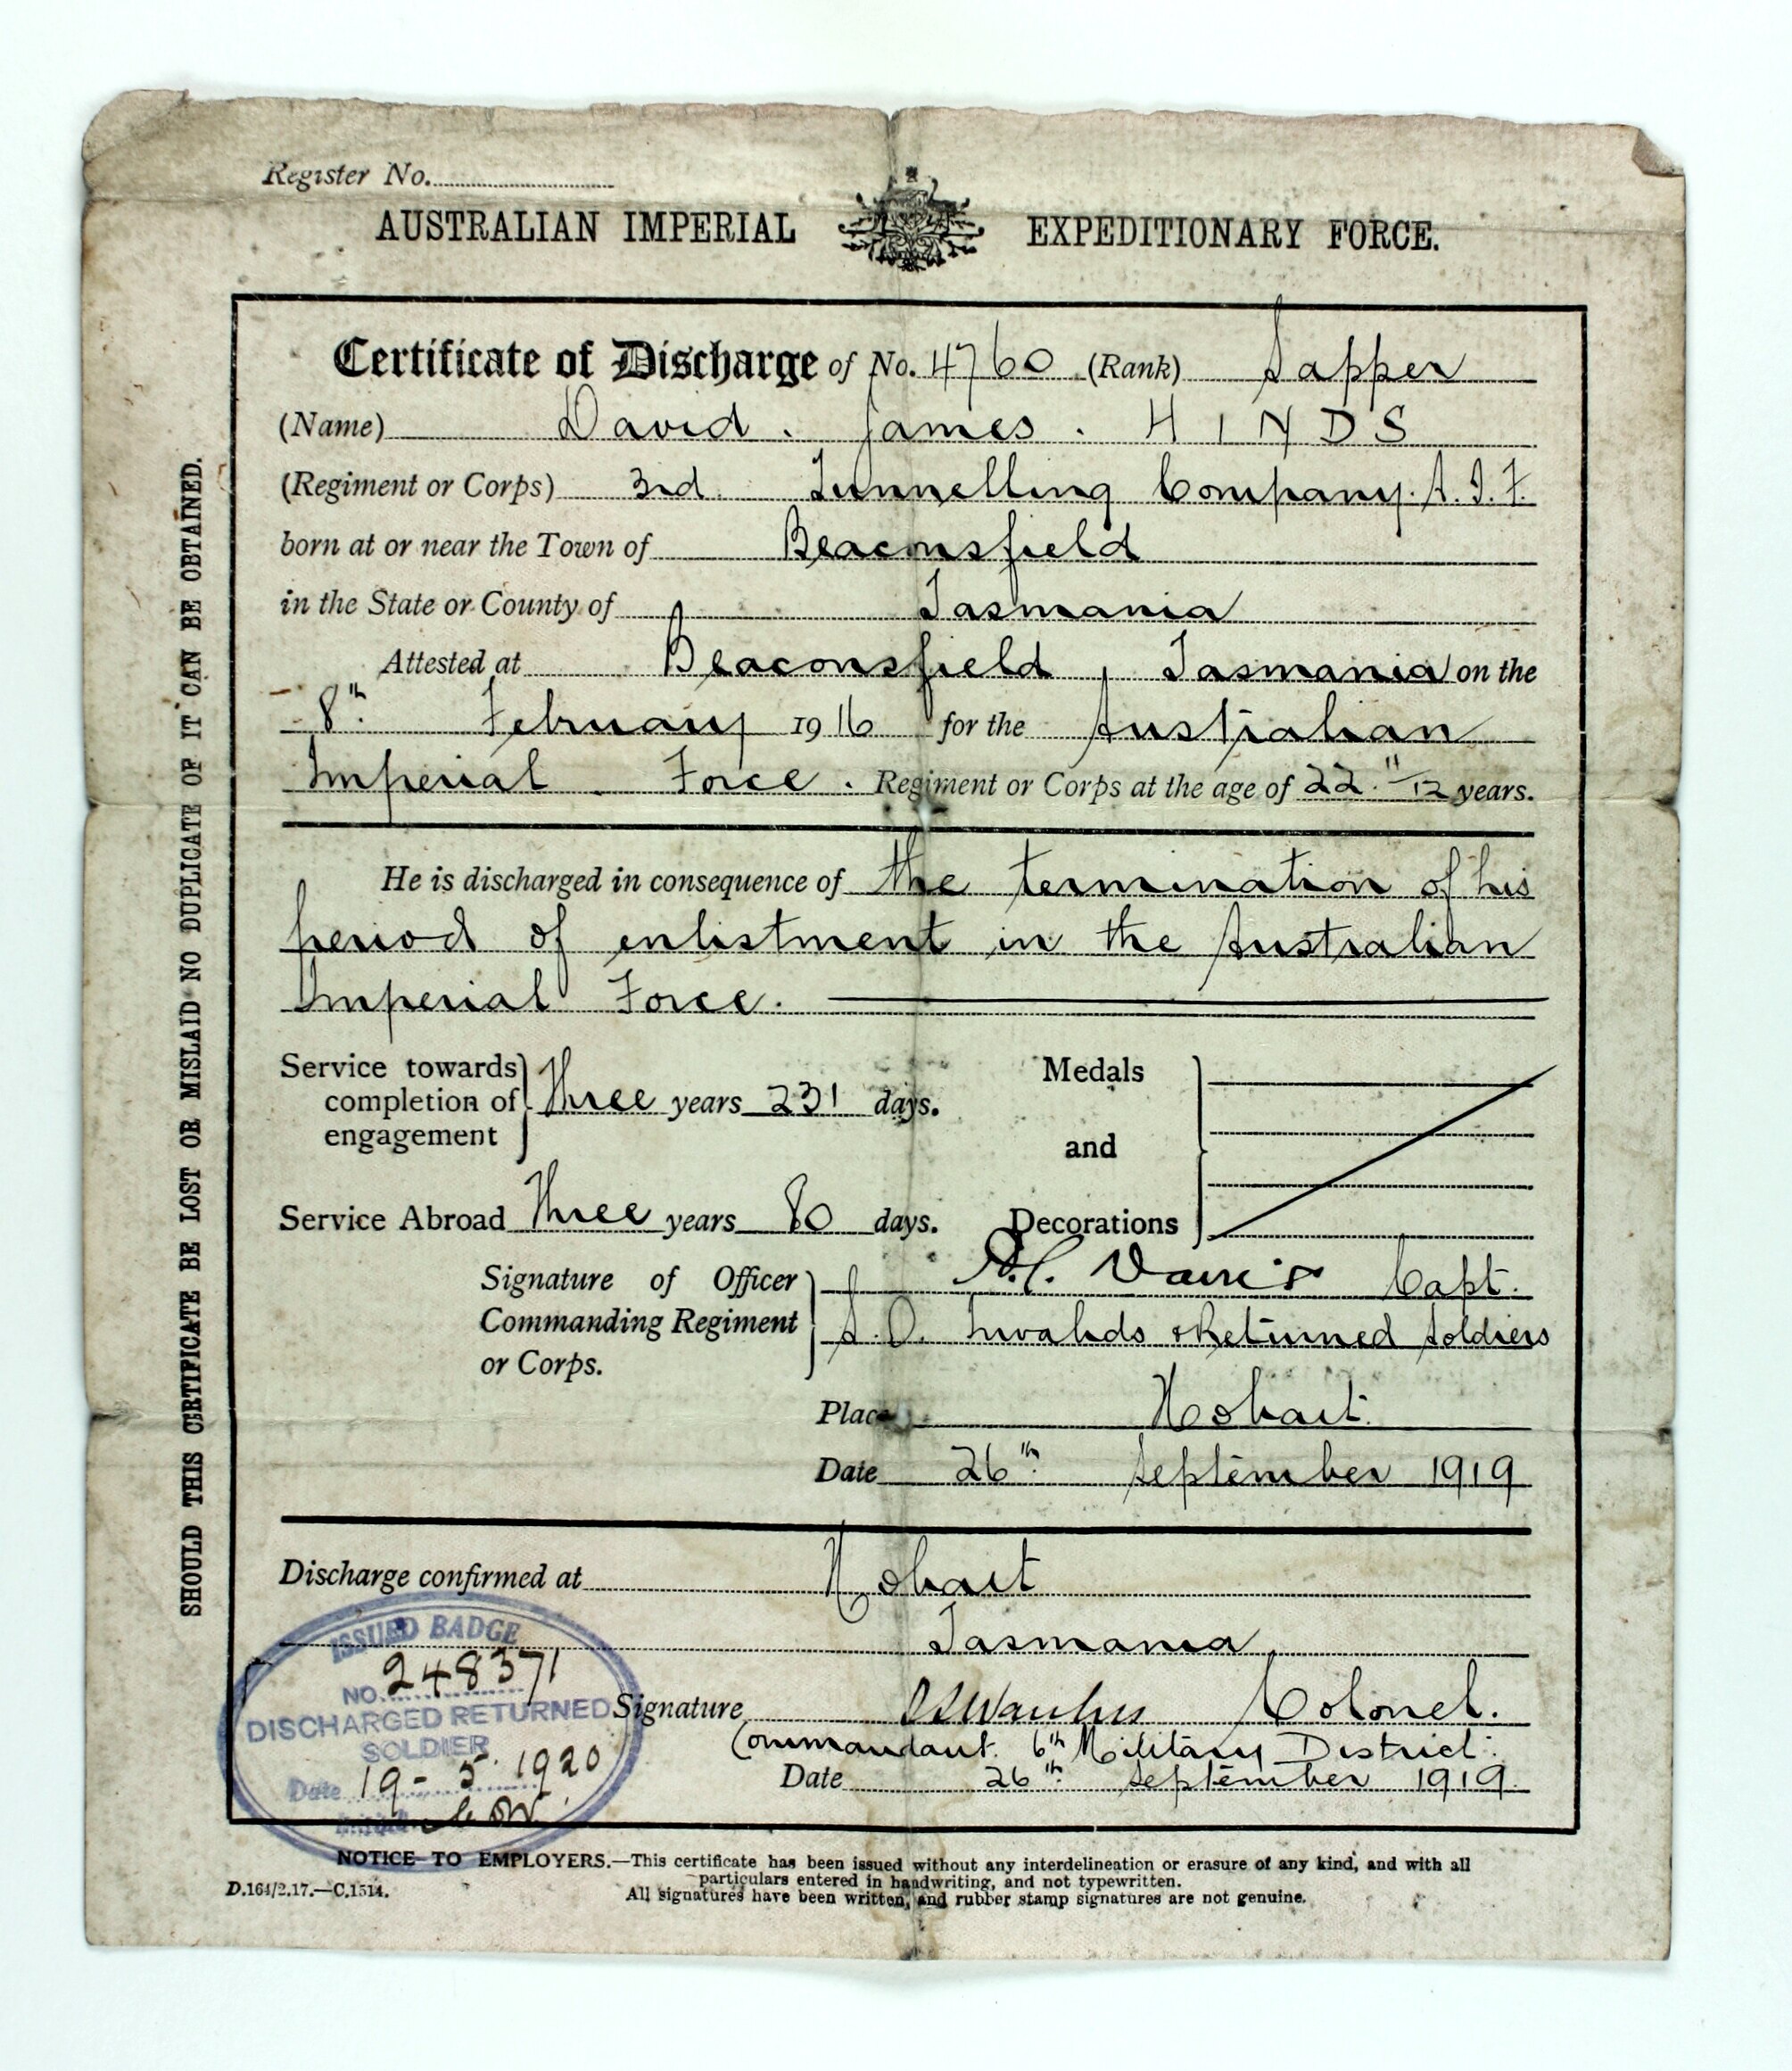 Register No.
AUSTRALIAN IMPERIAL EXPEDITIONARY FORCE.
Certificate of Discharge of No. 4760 (Rank) Sapper
(Name) David . James . HINDS
(Regiment or Corps) 3rd. Tunnelling Company. A.I.F.
born at or near the Town of Beaconsfield
in the State or County of Tasmania
Attested at Beaconsfield, Tasmania on the
8th. February 1916 for the Australian
Imperial Force. Regiment or Corps at the age of 22. 11/12 years.
He is discharged in consequence of the termination of his
period of enlistment in the Australian
Imperial Force.
Service towards completion of engagement } Three years 231 days.
Medals and Decorations
Service Abroad Three years 80 days.
Signature of Officer Commanding Regiment or Corps. Capt.
S.O. Invalids & Returned Soldiers
Place Hobart.
Date 26th. September 1919
Discharge confirmed at Hobart
Tasmania.
Signature Colonel.
Commandant. 6th Military District.
Date 26th. September 1919.
ISSUED BADGE
NO. 248371
DISCHARGED RETURNED
SOLDIER
Date 19-5.1920
Initial
NOTICE TO EMPLOYERS.—This certificate has been issued without any interdelineation or erasure of any kind, and with all
particulars entered in handwriting, and not typewritten.
All signatures have been written, and rubber stamp signatures are not genuine.
D.164/2.17.—C.1514.
SHOULD THIS CERTIFICATE BE LOST OR MISLAID NO DUPLICATE OF IT CAN BE OBTAINED.